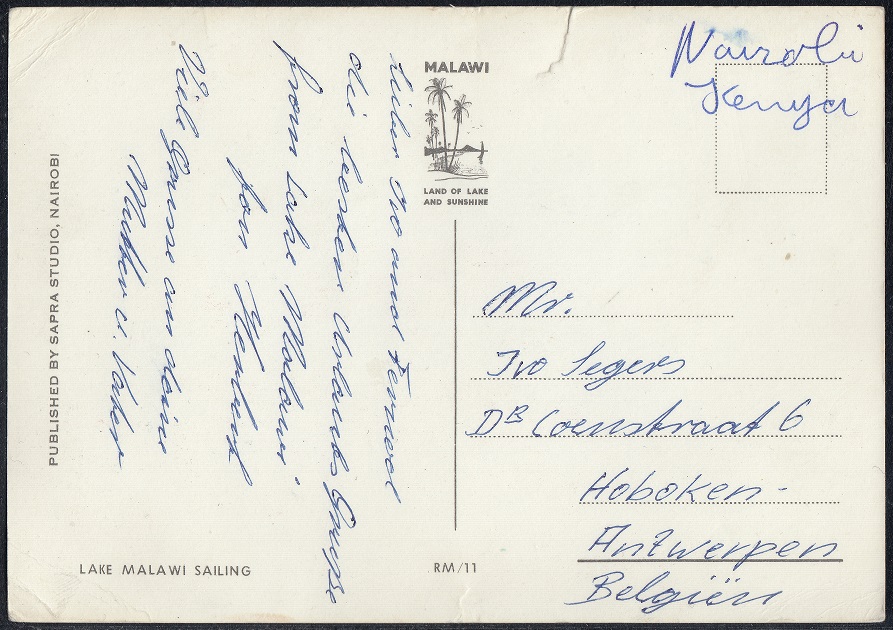 MALAWI
LAND OF LAKE
AND SUNSHINE
Nairobi
Kenya
Lieber Ivo und
die besten Urlaubs Grüsse
from Lake Malawi
fon
Viele Grüsse an deine
Mutter u. Vater
Mr.
Ivo Segers
DR Coenstraat 6
Hoboken -
Antwerpen
Belgiën
PUBLISHED BY SAPRA STUDIO, NAIROBI
LAKE MALAWI SAILING
RM/11